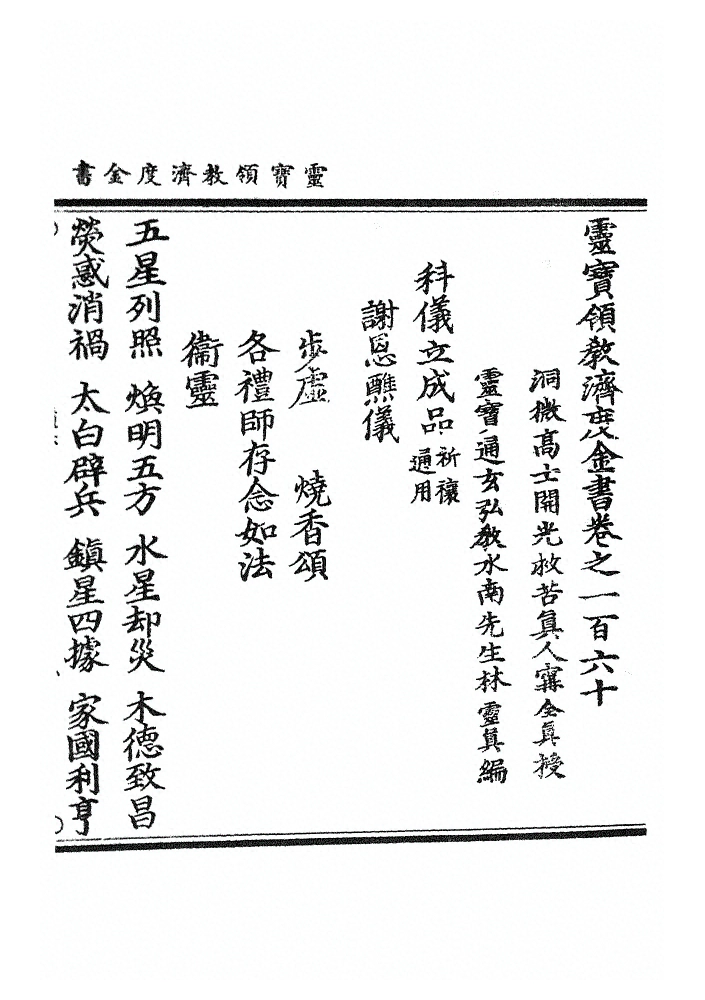 靈寶領教濟度金書
靈寶領教濟度金書卷之一百六十
洞微高士開光救苦眞人寗全眞授
靈寶通玄弘教水南先生林靈眞編
科儀立成品祈禳通用
謝恩醮儀
步虛　燒香頌
各禮師存念如法
衞靈
五星列照　煥明五方　水星却災　木德致昌
熒惑消禍　太白辟兵　鎮星四據　家國利亨